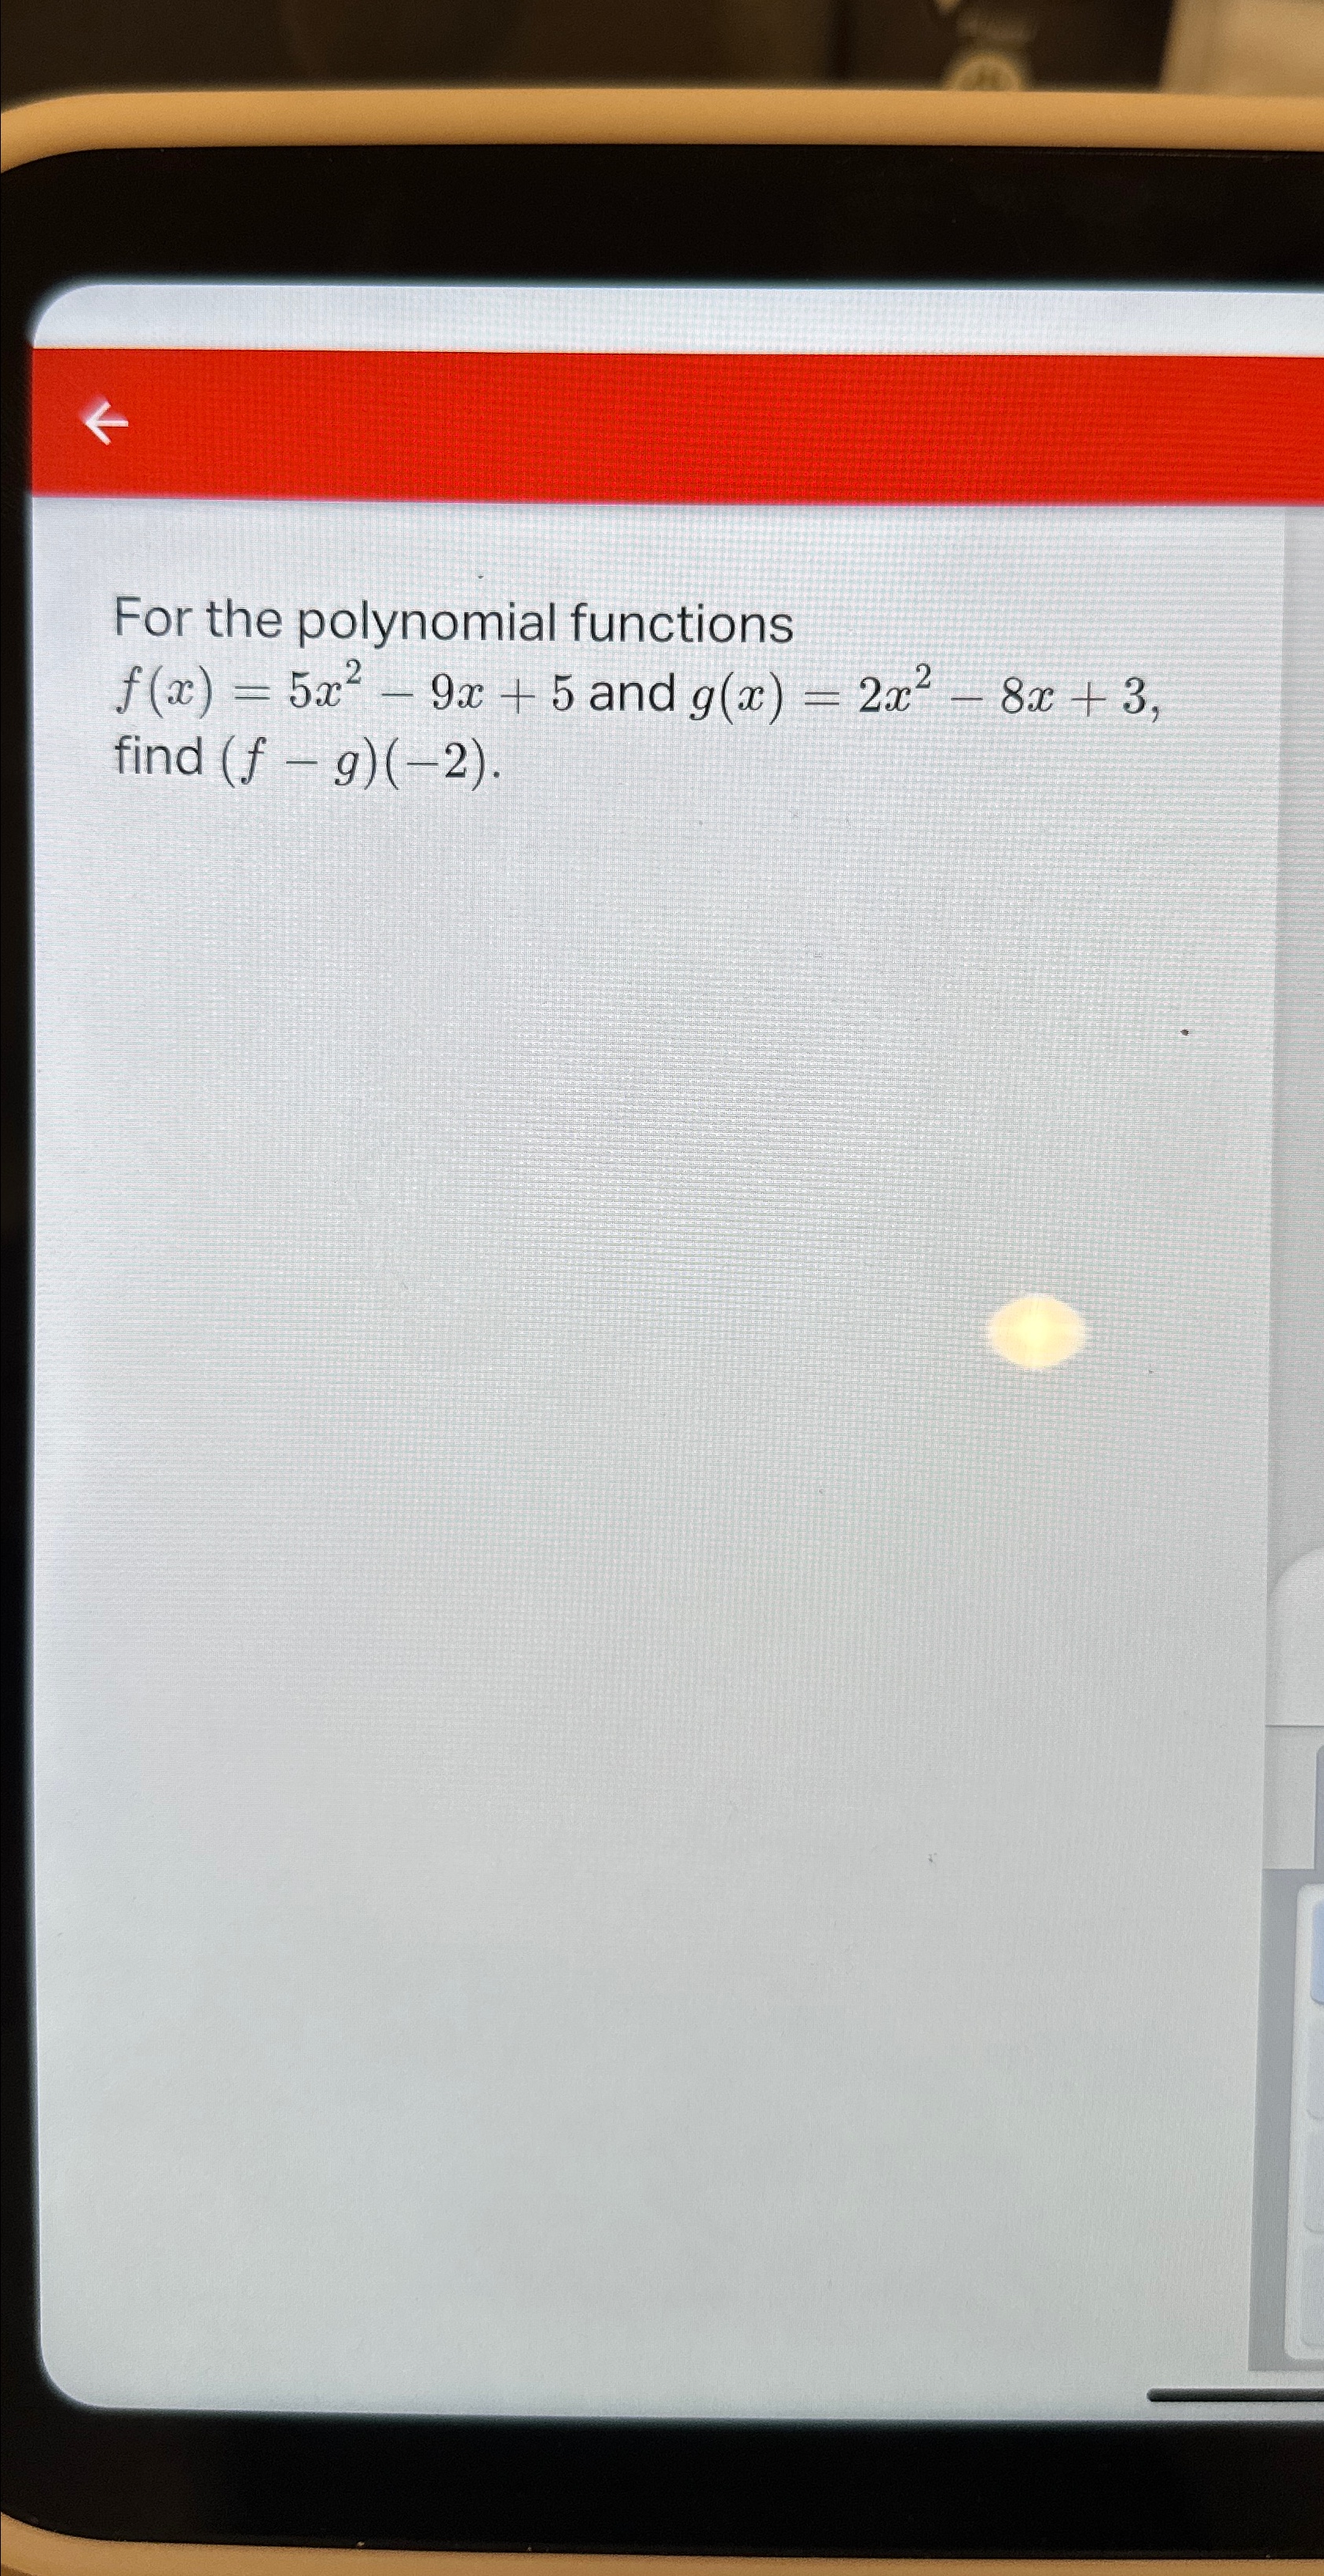 For the polynomial functions
f(x) = 5x² − 9x + 5 and g(x) = 2x² − 8x + 3,
find (f − g)(−2).